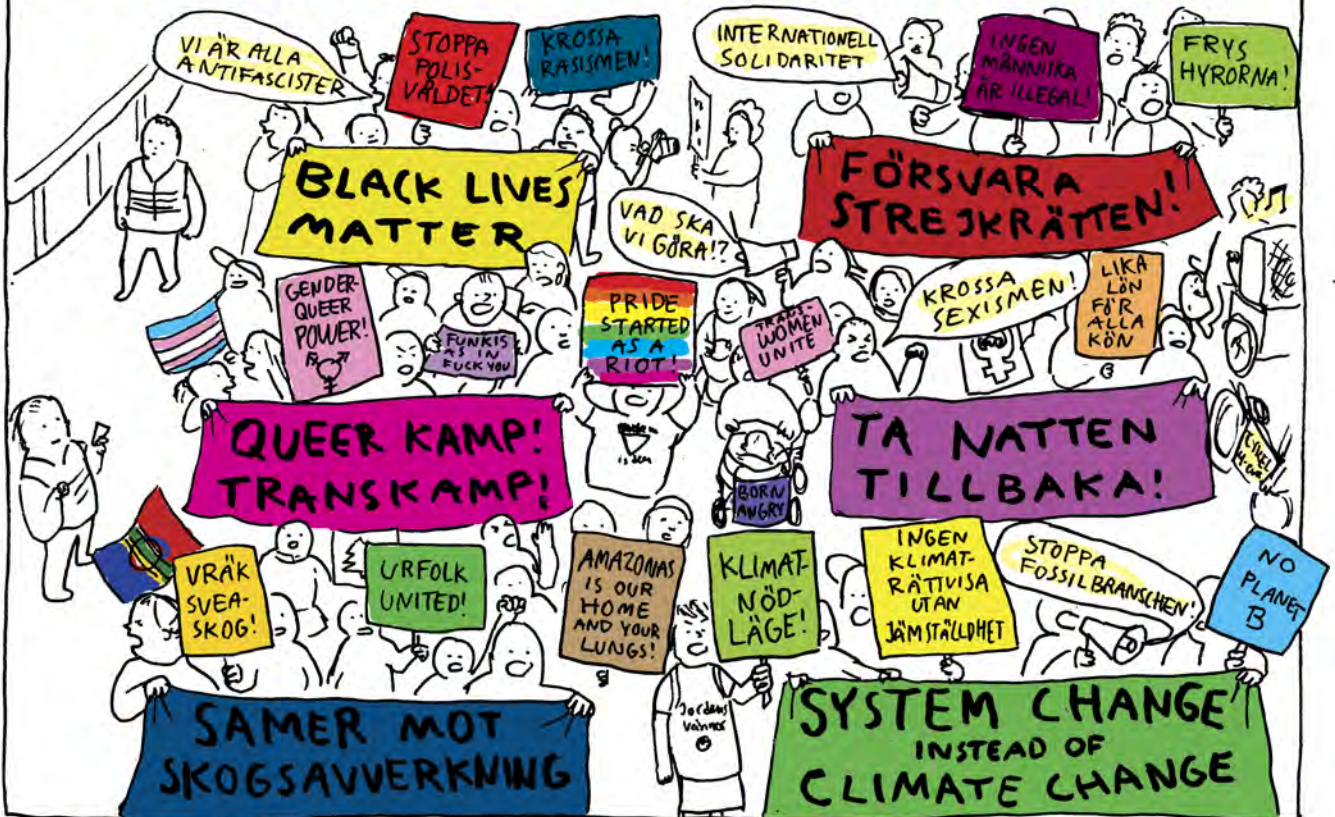 VI ÄR ALLA
ANTIFASCISTER
STOPPA
POLIS-
VÅLDET!
KROSSA
RASISMEN!
INTERNATIONELL
SOLIDARITET
INGEN
MÄNNISKA
ÄR ILLEGAL!
FRYS
HYRORNA!
BLACK LIVES
MATTER
FÖRSVARA
STREJKRÄTTEN!
VAD SKA
VI GÖRA!?
GENDER-
QUEER
POWER!
FUNKIS
AS IN
FUCK YOU
PRIDE
STARTED
AS A
RIOT!
TRANS-
WOMEN
UNITE
KROSSA
SEXISMEN!
LIKA
LÖN
FÖR
ALLA
KÖN
QUEER KAMP!
TRANSKAMP!
BORN
ANGRY
TA NATTEN
TILLBAKA!
VRÄK
SVEA-
SKOG!
URFOLK
UNITED!
AMAZONAS
IS OUR
HOME
AND YOUR
LUNGS!
KLIMAT-
NÖD-
LÄGE!
INGEN
KLIMAT-
RÄTTVISA
UTAN
JÄMSTÄLLDHET
STOPPA
FOSSILBRANSCHEN!
NO
PLANET
B
SAMER MOT
SKOGSAVVERKNING
Jordens
vänner
SYSTEM CHANGE
INSTEAD OF
CLIMATE CHANGE